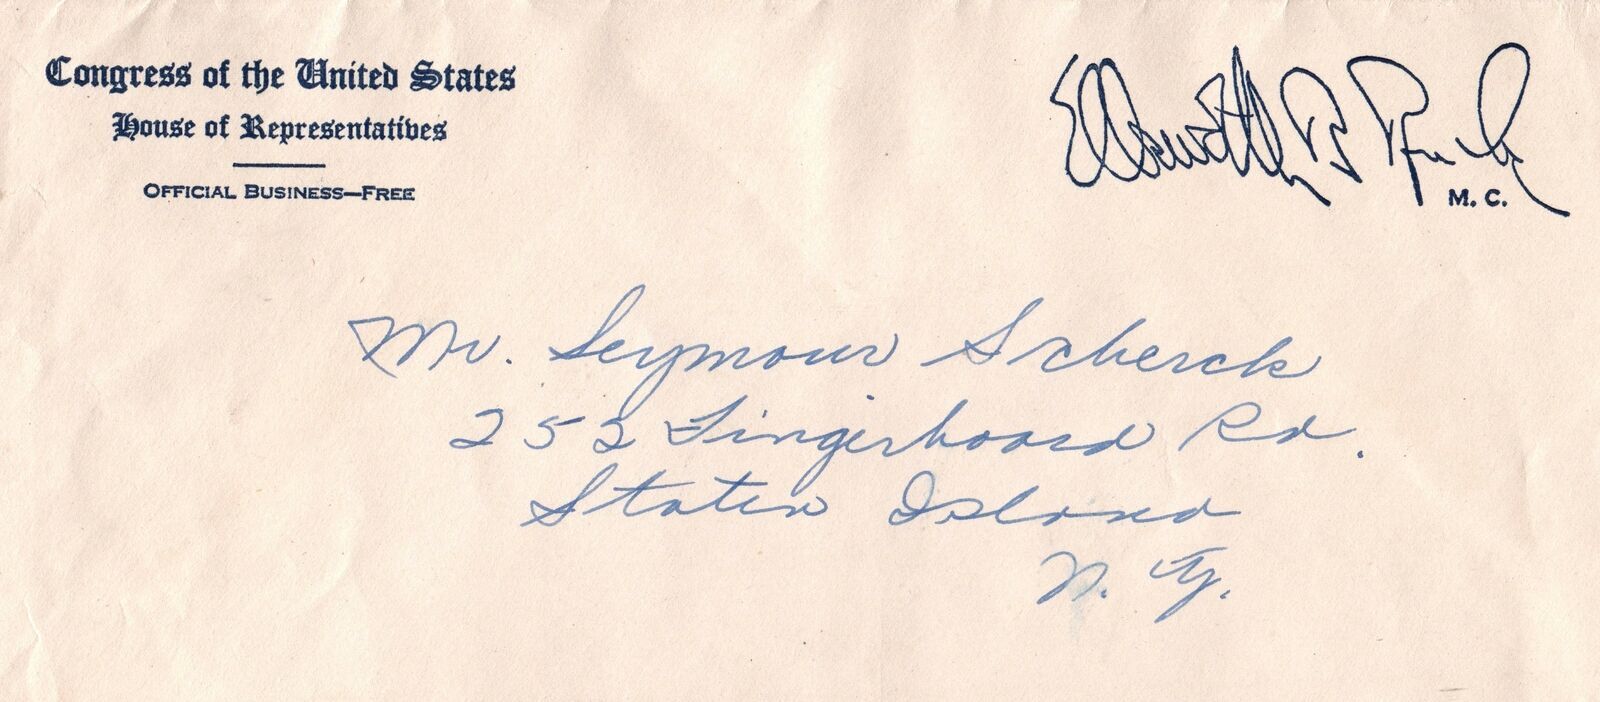 Congress of the United States
House of Representatives
OFFICIAL BUSINESS—FREE
Ellsworth B Buck
M. C.
Mr. Seymour Scherck
252 Fingerboard Rd.
Staten Island
N. Y.